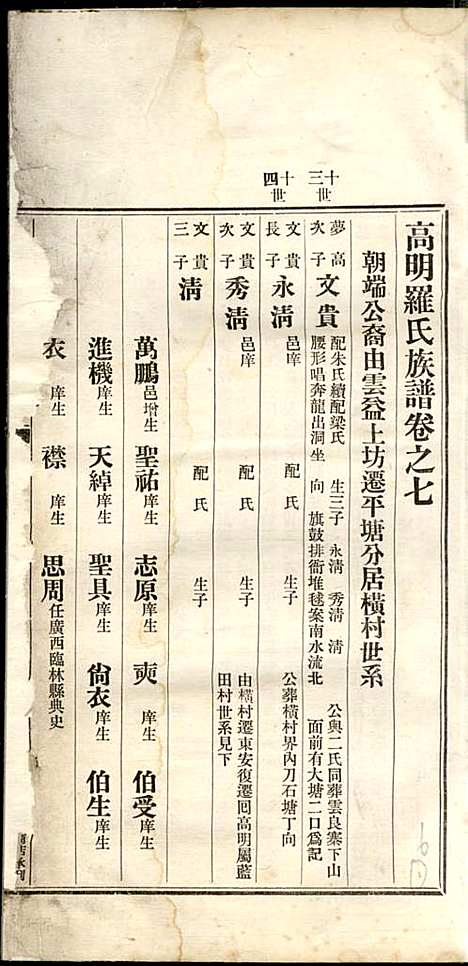 十三世
十四世
高明羅氏族譜卷之七
朝端公裔由雲益上坊遷平塘分居橫村世系
夢高次子
文貴
配朱氏續配梁氏 生三子 永清 秀清 清 公與二氏同葬雲良寨下山
腰形唱奔龍出洞坐 向 旗鼓排衙堆毬案南水流北 面前有大塘二口爲記
文貴長子
永清
邑庠 配氏 生子 公葬橫村界內刀石塘丁向
文貴次子
秀清
邑庠 配氏 生子 由橫村遷東安復遷回高明屬藍
田村世系見下
文貴三子
清
配氏 生子
萬鵬邑增生 聖祐庠生 志原庠生 奭庠生 伯受庠生
進機庠生 天綽庠生 聖具庠生 尙衣庠生 伯生庠生
衣庠生 襟庠生 思周任廣西臨林縣典史